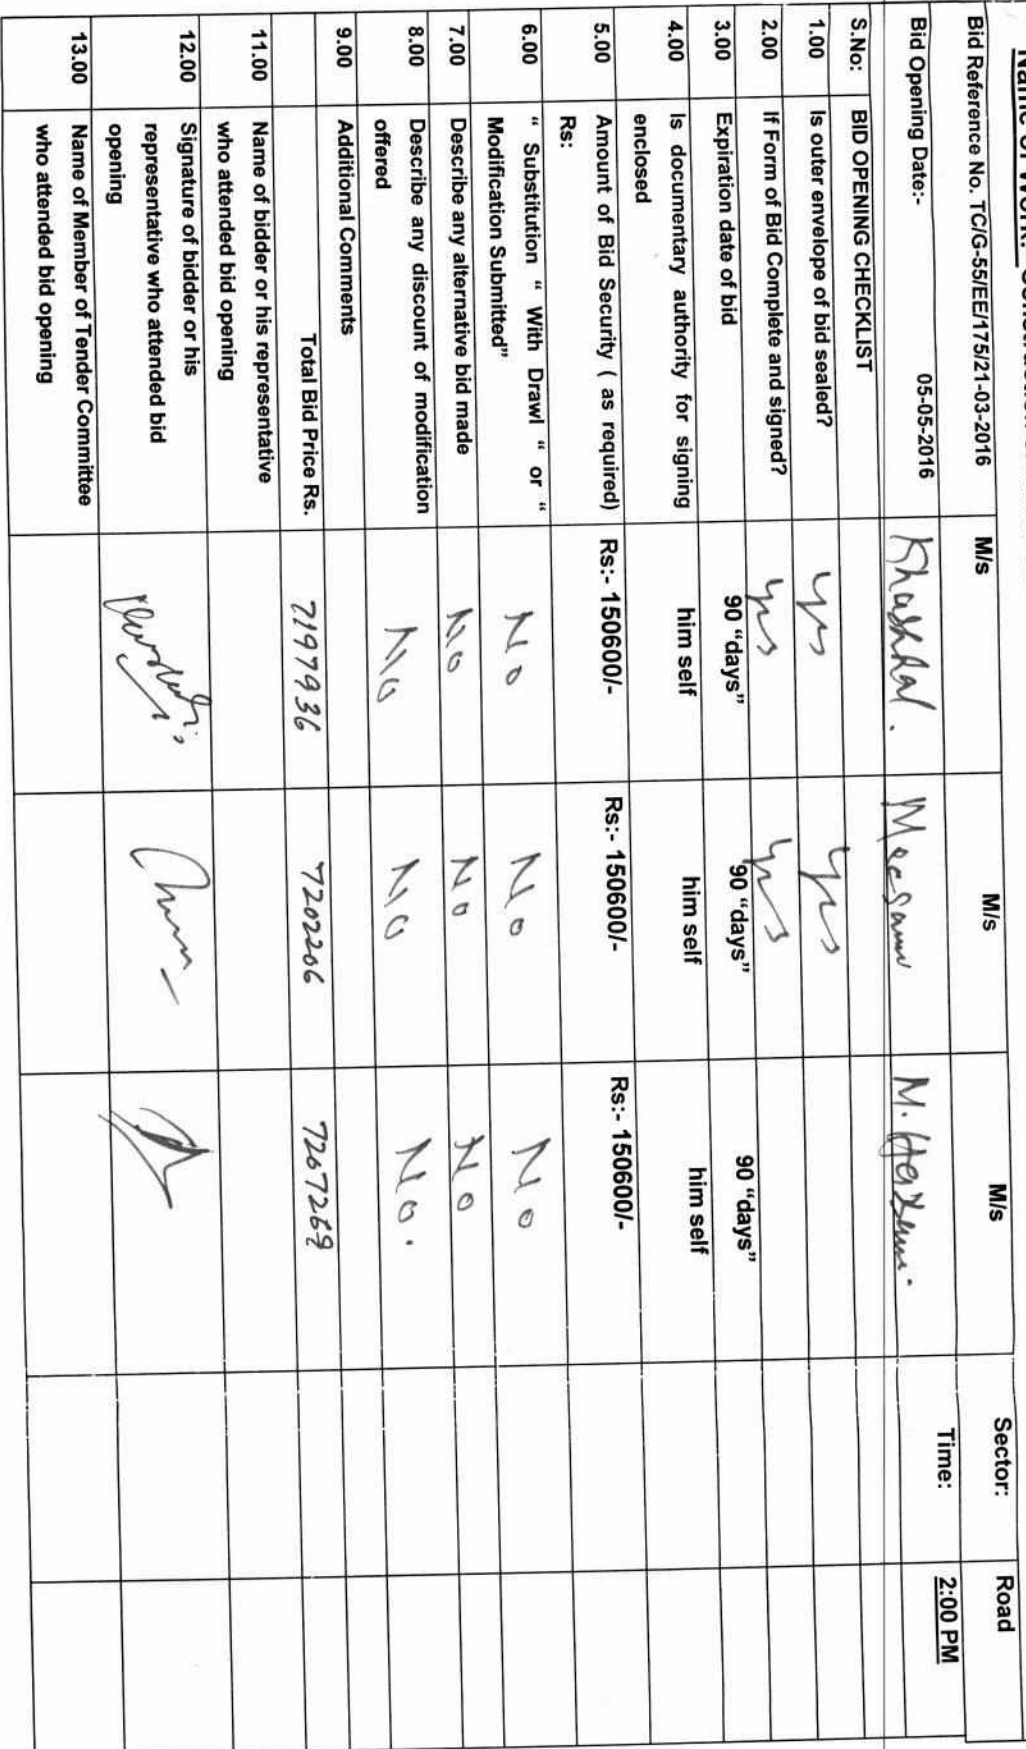 Bid Reference No. TC/G-55/EE/175/21-03-2016 M/s M/s M/s Sector: Road
Bid Opening Date:- 05-05-2016 Khushhal. M. Time: 2:00 PM
S.No: BID OPENING CHECKLIST
1.00 Is outer envelope of bid sealed? yes yes
2.00 If Form of Bid Complete and signed? yes yes
3.00 Expiration date of bid 90 “days” 90 “days” 90 “days”
4.00 Is documentary authority for signing him self him self him self
enclosed
5.00 Amount of Bid Security ( as required) Rs:- 150600/- Rs:- 150600/- Rs:- 150600/-
Rs:
6.000 “ Substitution “ With Drawl “ or “ No No No
Modification Submitted”
7.00 Describe any alternative bid made No No No
8.00 Describe any discount of modification No No No.
offered
9.00 Additional Comments
Total Bid Price Rs. 7197936 7202206 7267269
11.00 Name of bidder or his representative
who attended bid opening
12.00 Signature of bidder or his
representative who attended bid
opening
13.00 Name of Member of Tender Committee
who attended bid opening